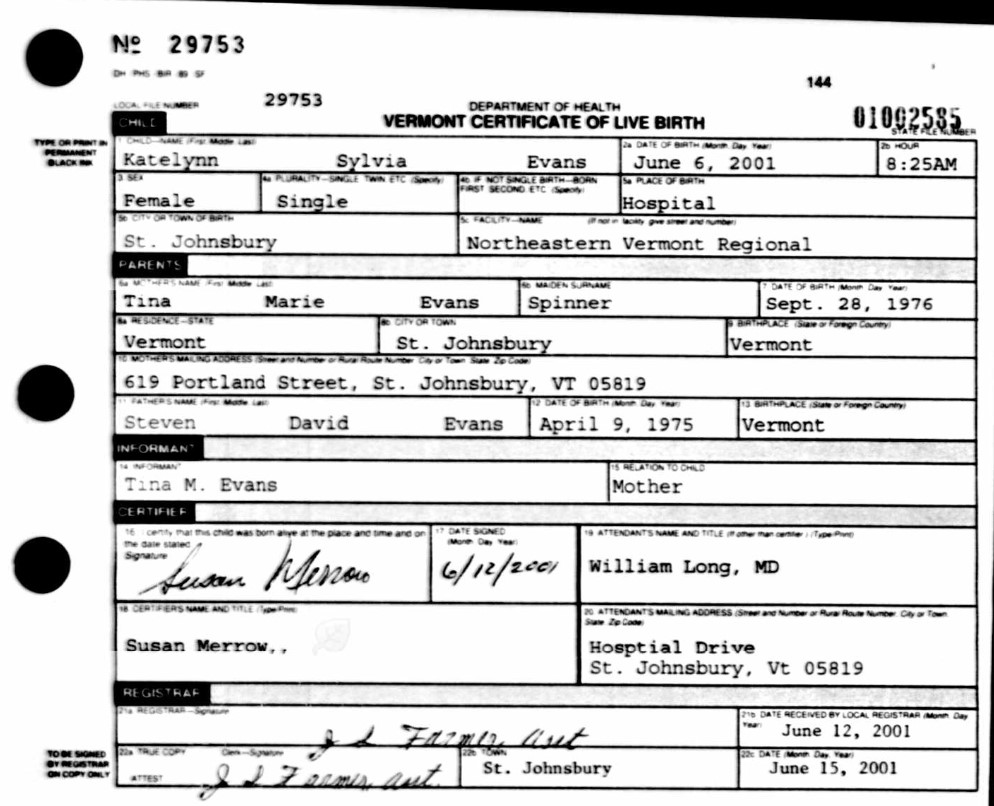 Nº 29753
DH PHS BIR 89 SF
144
LOCAL FILE NUMBER 29753
DEPARTMENT OF HEALTH
VERMONT CERTIFICATE OF LIVE BIRTH
01002585
STATE FILE NUMBER
TYPE OR PRINT IN PERMANENT BLACK INK
CHILD
1 CHILD—NAME (First Middle Last) 2a DATE OF BIRTH (Month Day Year) 2b HOUR
Katelynn Sylvia Evans June 6, 2001 8:25AM
3 SEX 4a PLURALITY—SINGLE TWIN ETC (Specify) 4b IF NOT SINGLE BIRTH—BORN FIRST SECOND ETC (Specify) 5a PLACE OF BIRTH
Female Single Hospital
5b CITY OR TOWN OF BIRTH 5c FACILITY—NAME (If not in facility give street and number)
St. Johnsbury Northeastern Vermont Regional
PARENTS
6a MOTHER'S NAME (First Middle Last) 6b MAIDEN SURNAME 7 DATE OF BIRTH (Month Day Year)
Tina Marie Evans Spinner Sept. 28, 1976
8a RESIDENCE—STATE 8b CITY OR TOWN 9 BIRTHPLACE (State or Foreign Country)
Vermont St. Johnsbury Vermont
10 MOTHER'S MAILING ADDRESS (Street and Number or Rural Route Number City or Town State Zip Code)
619 Portland Street, St. Johnsbury, VT 05819
11 FATHER'S NAME (First Middle Last) 12 DATE OF BIRTH (Month Day Year) 13 BIRTHPLACE (State or Foreign Country)
Steven David Evans April 9, 1975 Vermont
INFORMANT
14 INFORMANT 15 RELATION TO CHILD
Tina M. Evans Mother
CERTIFIER
16 I certify that this child was born alive at the place and time and on the date stated
Signature
Susan Merrow
17 DATE SIGNED (Month Day Year)
6/12/2001
19 ATTENDANT'S NAME AND TITLE (If other than certifier) (Type/Print)
William Long, MD
18 CERTIFIER'S NAME AND TITLE (Type/Print)
Susan Merrow,,
20 ATTENDANT'S MAILING ADDRESS (Street and Number or Rural Route Number City or Town State Zip Code)
Hosptial Drive
St. Johnsbury, Vt 05819
REGISTRAR
21a REGISTRAR—Signature 21b DATE RECEIVED BY LOCAL REGISTRAR (Month Day Year)
J S Farmer, asst June 12, 2001
TO BE SIGNED BY REGISTRAR ON COPY ONLY
22a TRUE COPY Clerk—Signature 22b TOWN 22c DATE (Month Day Year)
ATTEST J S Farmer, asst. St. Johnsbury June 15, 2001